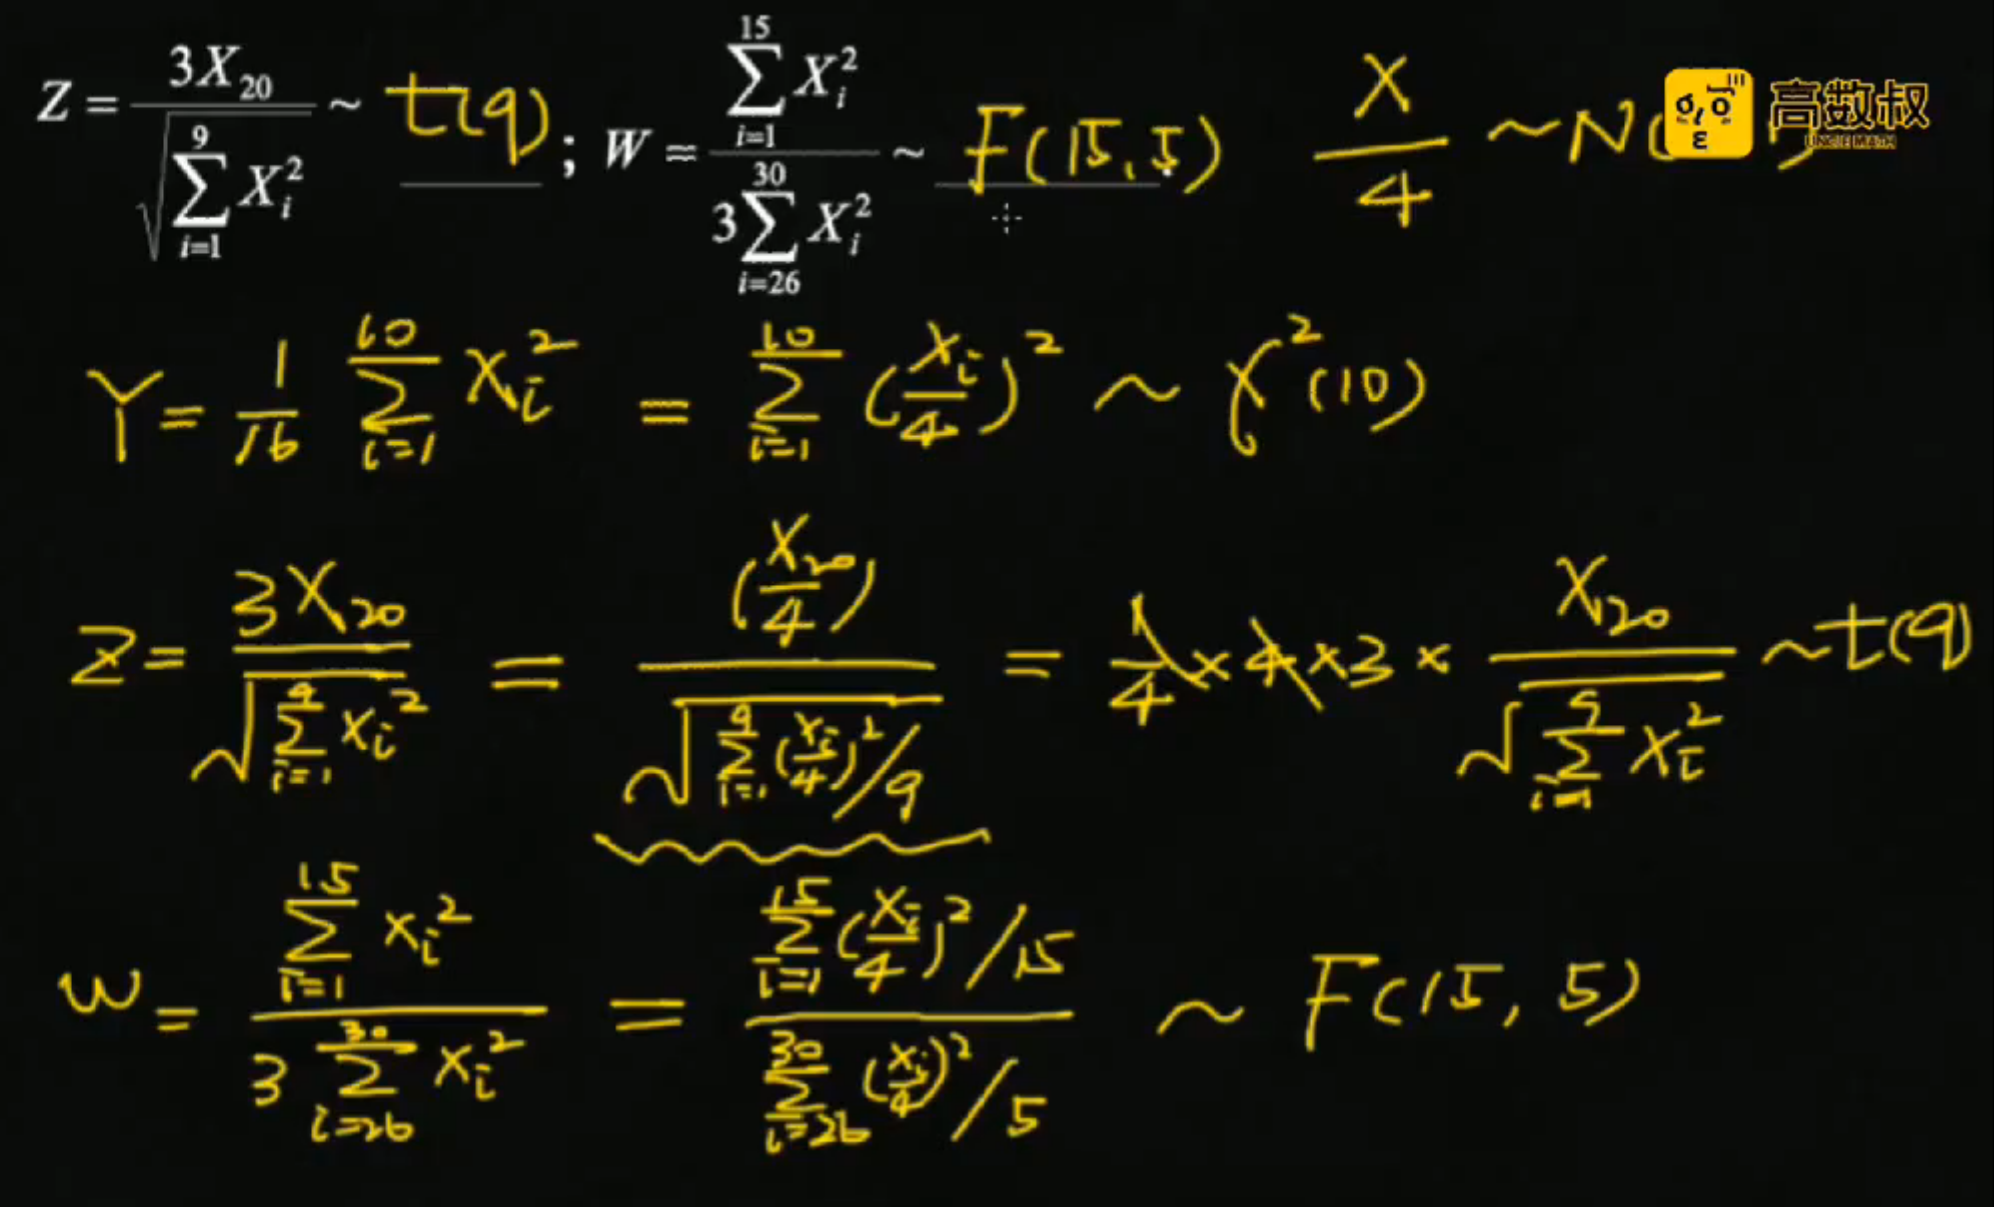 Z = 3X₂₀ / √(∑_{i=1}^{9} X_i²) ~ t(9) ; W = ∑_{i=1}^{15} X_i² / 3∑_{i=26}^{30} X_i² ~ F(15,5) X/4 ~ N(
高数叔
UNCLE MATH
Y = 1/16 ∑_{i=1}^{10} X_i² = ∑_{i=1}^{10} (X_i/4)² ~ χ²(10)
Z = 3X₂₀ / √(∑_{i=1}^{9} X_i²) = (X₂₀/4) / √(∑_{i=1}^{9} (X_i/4)²/9) = 1/4 × 4 × 3 × X₂₀ / √(∑_{i=1}^{9} X_i²) ~ t(9)
W = ∑_{i=1}^{15} X_i² / 3∑_{i=26}^{30} X_i² = ∑_{i=1}^{15} (X_i/4)²/15 / ∑_{i=26}^{30} (X_i/4)²/5 ~ F(15, 5)